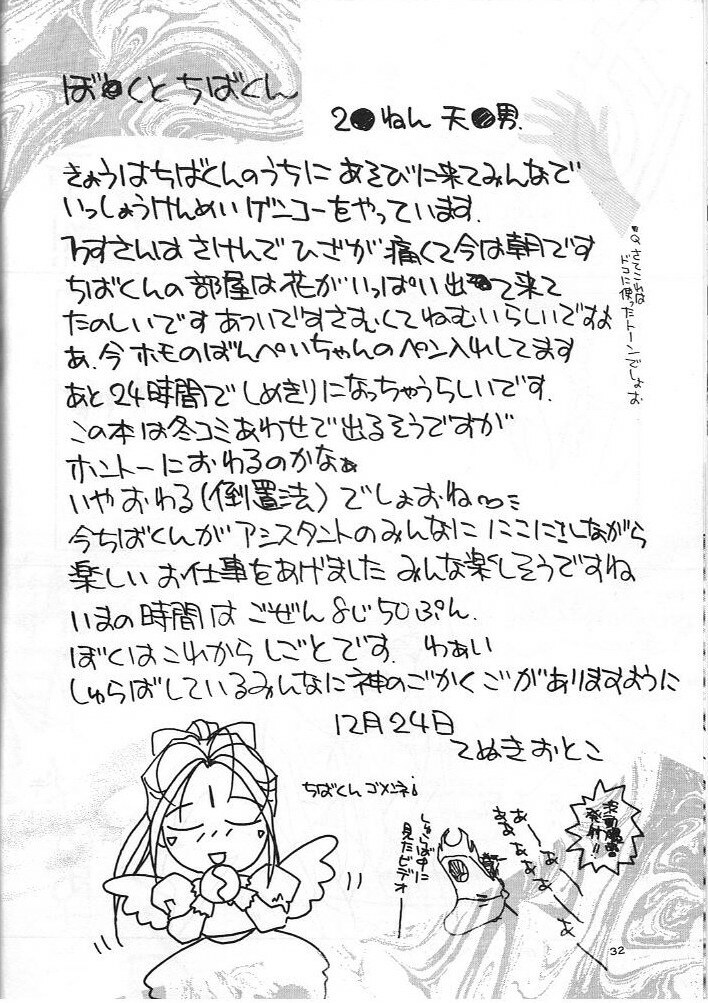 ぼくとちばくん
2●ねん 天●男.
きょうはちばくんのうちに あそびに来てみんなで
いっしょうけんめい ゲンコーをやっています.
さんは さけんで ひざが 痛くて今は朝です
ちばくんの 部屋は花がいっぱい出て来て
たのしいです あついですさむくてねむいらしいですよ
あ.今 ホモのばんぺいちゃんの ペン入れしてます
あと24時間で しめきりになっちゃうらしいです.
この本は冬コミあわせで出るそうですが
ホントーにおわるのかなぁ
いやおわる(倒置法)でしょおね〜
今ちばくんが アシスタントのみんなに にこにこしながら
楽しい お仕事をあげました みんな楽しそうですね
いまの時間は ごぜん 8じ50ぷん.
ぼくはこれから しごとです. わぁい
しゅらばしているみんなに神のごかくごがありますように
12月24日
てぬきおとこ
Q さてこれは
ドコに使ったトーンでしょお
ちばくんゴメンネ!
しゅらば中に
見たビデオー
あーあ
ああああああ
発射!!
32